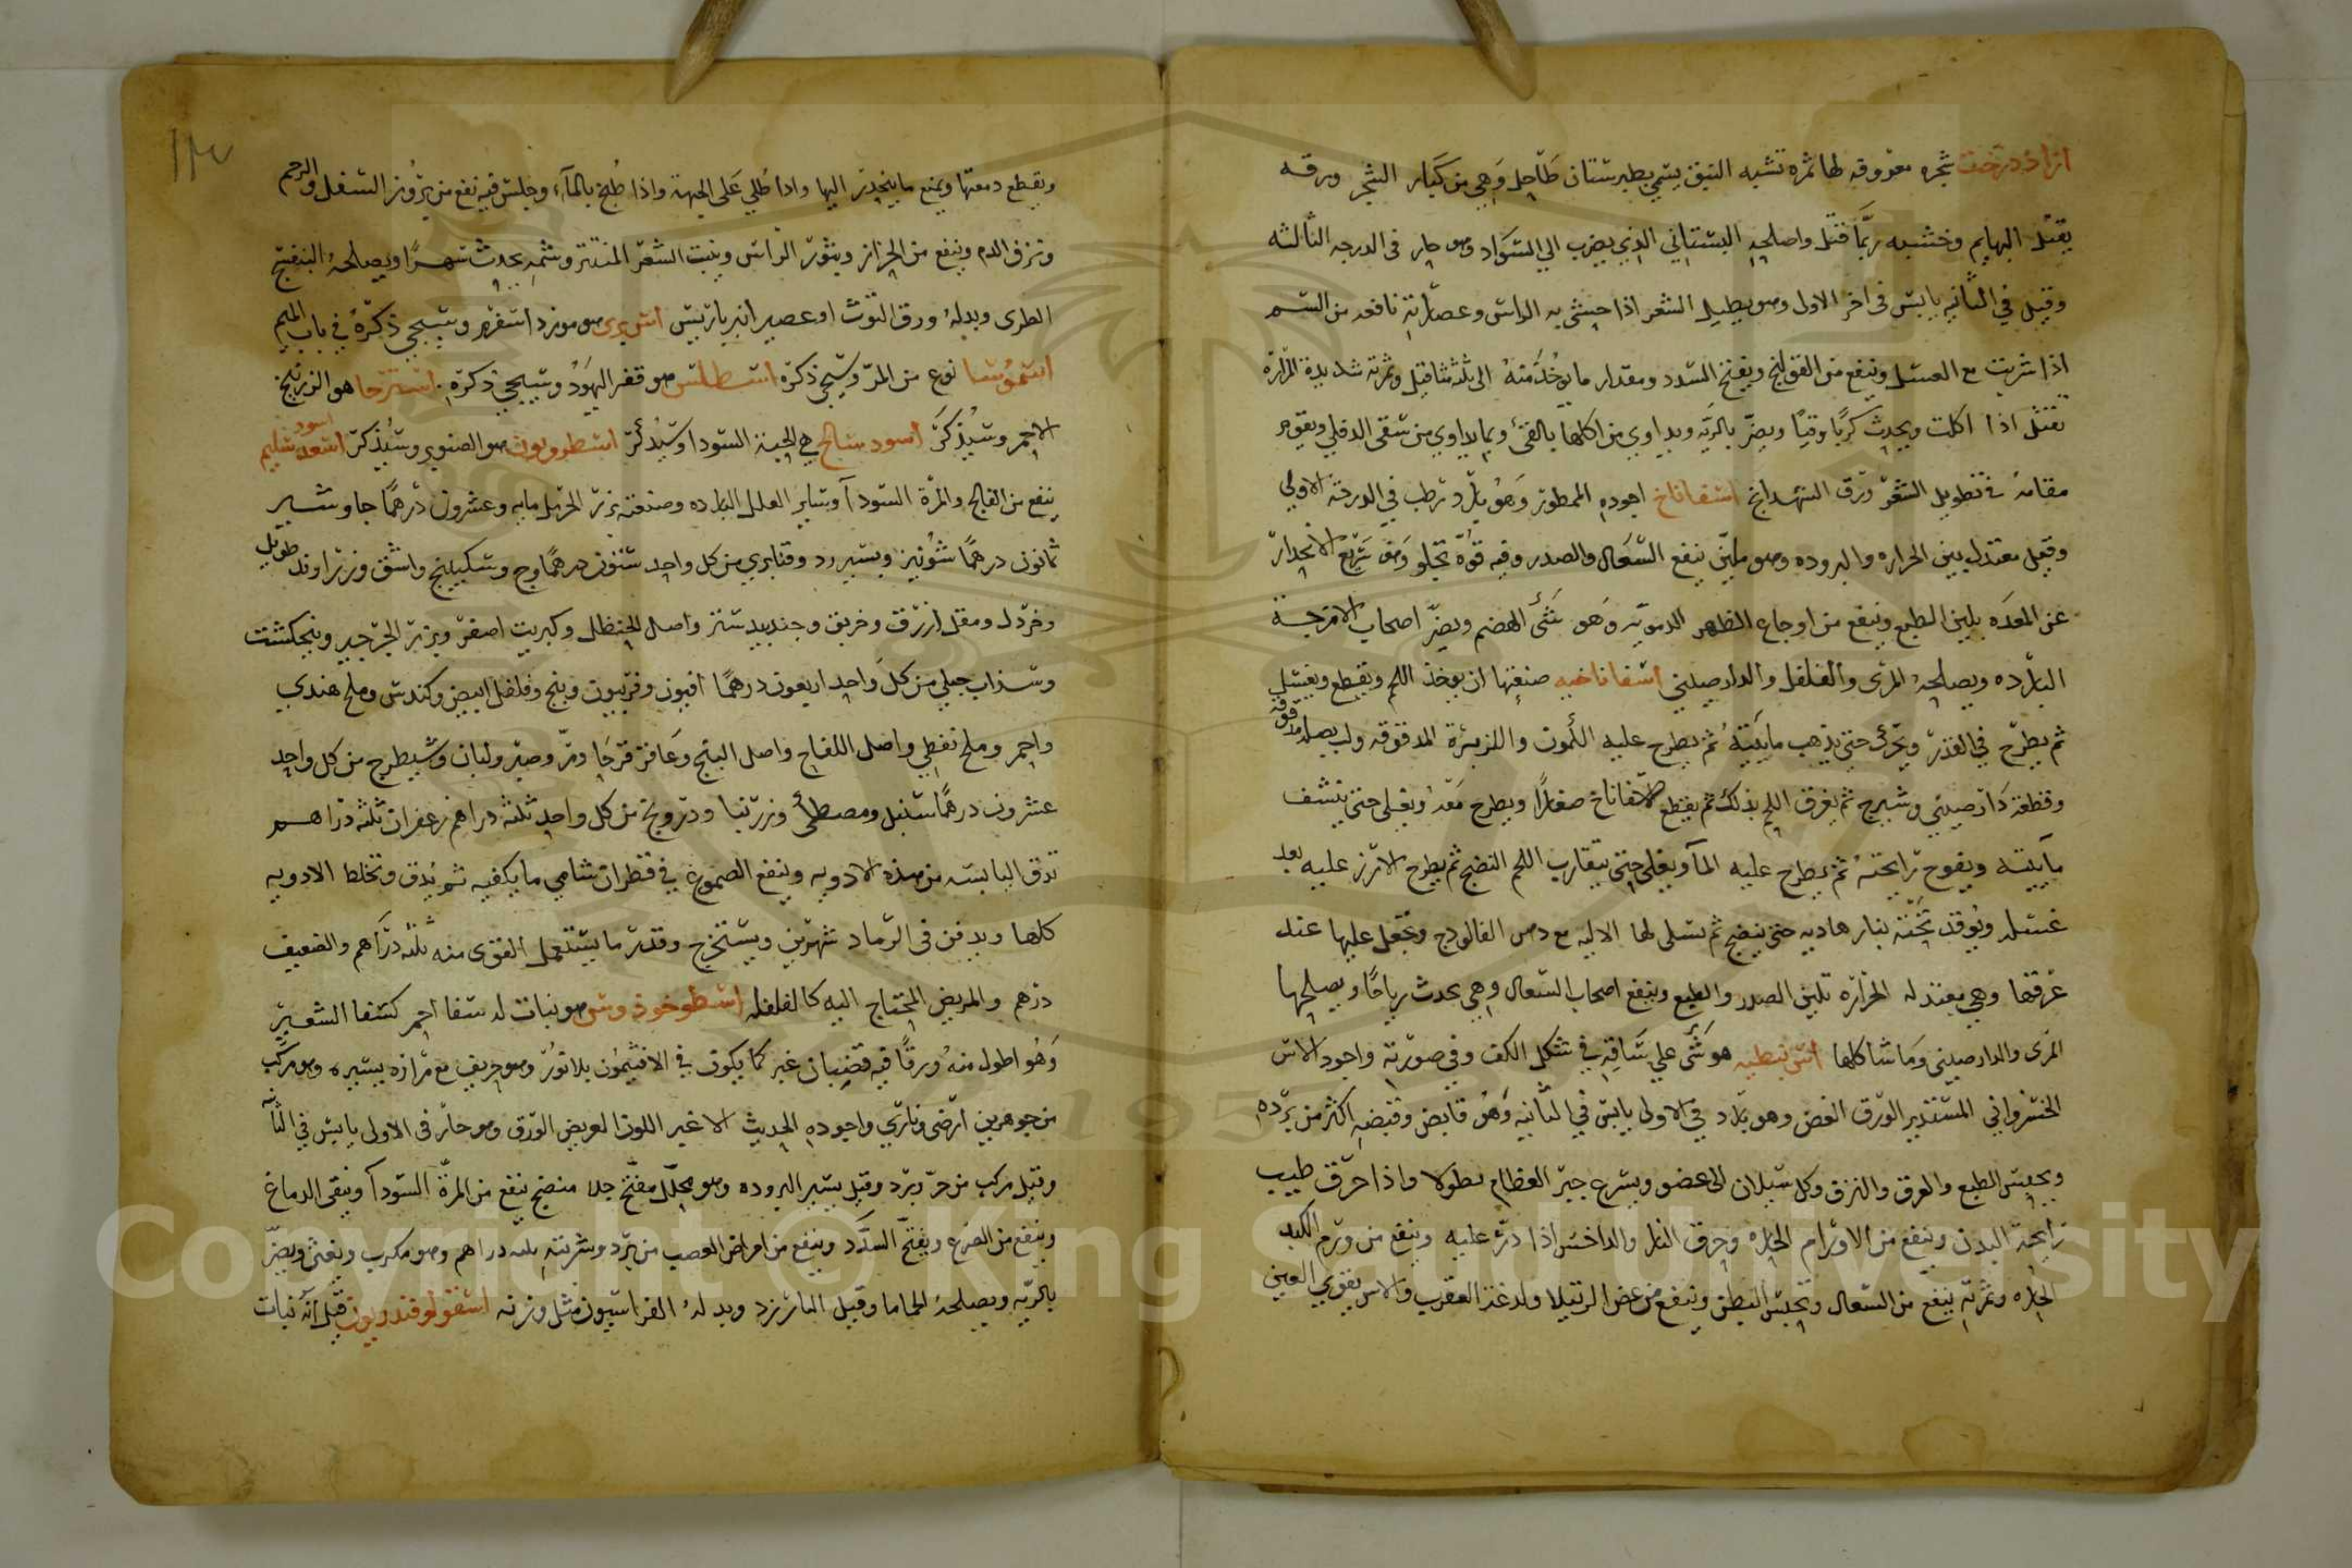 ازاددرخت شجره معروفه لها ثمره تشبه النبق يسمى بطبرستان طاحل وهي من كبار الشجر ورقه
يقتل البهايم وخشبه ربما قتل واصلحه البستاني الذي يضرب الى السواد وهو حار في الدرجه الثالثه
وقيل في الثانيه يابس في اخر الاولى وهو يطيل الشعر اذا حشى به الراس وعصارته نافعه من السم
اذا شربت مع العسل وينفع من القولنج ويفتح السدد ومقدار ما يؤخذ منه الى ثلثة مثاقيل وثمرته شديدة المرارة
تقتل اذا اكلت ويحدث كربا وقيا ويضر بالريه ويداوى من اكلها بالقئ وبما يداوى من سقى الدفلى ويقوم
مقامه في تطويل الشعر ورق الشهدانج اسفاناخ اجوده الممطور وهو بارد رطب في الدرجة الاولى
وقيل معتدل بين الحراره والبروده وهو ملين ينفع السعال والصدر وفيه قوة تجلو وهو سريع الانحدار
عن المعده يلين الطبع وينفع من اوجاع الظهر الدمويه وهو سئ الهضم ويضر اصحاب الامزجة
البارده ويصلحه المرى والفلفل والدارصيني اسفاناخيه صنعتها ان يوخذ اللحم ويقطع ويغسل
ثم يطرح في القدر ويحرك حتى تذهب مائيته ثم يطرح عليه الكمون والكزبرة المدقوقه ولب بصله مدقوقه
وقطعة دارصيني وشيرج ثم يعرق اللحم بذلك ثم يقطع الاسفاناخ صغارا ويطرح معه ويغلى حتى ينشف
مائيته ويفوح رايحته ثم يطرح عليه الما ويغلى حتى يتقارب اللحم النضج ثم يطرح الارز عليه بعد
غسله ويوقد تحته بنار هاديه حتى ينضج ثم تسلى لها الاليه مع دهن الفالوذج وتجعل عليها عند
غرفها وهي معتدله الحرارة تلين الصدر والطبع وينفع اصحاب السعال وهي يحدث رياحا ويصلحها
المرى والدارصيني وما شاكلها اس نبطيه هو شئ على ساقه في شكل الكف وفي صورته واجود الاس
الخسرواني المستدير الورق الغض وهو بارد في الاولى يابس في الثانيه وهو قابض وقبضه اكثر من برده
ويحبس الطبع والعرق والنزف وكل سيلان الى عضو ويسرع جبر العظام نطولا واذا حرق طيب
رايحة البدن وينفع من الاورام الحاره وحرق النار والداحس اذا ذر عليه وينفع من ورم الكبد
الحاره وثمرته ينفع من السعال وتحبس البطن وينفع من عض الرتيلا ولدغة العقرب والاس يقوى العين
ويقطع دمعتها ويمنع ما ينحدر اليها واذا طلي على الجبهة واذا طبخ بالمآء وجلس فيه نفع من بروز السفل والرحم
ونزف الدم وينفع من الحزاز وبثور الراس وينبت الشعر المنتثر وشمه يحدث سهرا ويصلحه البنفسج
الطرى وبدله ورق التوث او عصير انبرباريس اس برى هو موزد اسفرم وسيجي ذكره في باب الميم
اسموسا نوع من المر وسيجي ذكره اسطلس هو قفر اليهود وسيجي ذكره اسرنجا هو الزرنيخ
الاحمر وسيذكر اسود سالخ هي الحية السودا وسيذكر اسطروبون هو الصنوبر وسيذكر اسود سليم
ينفع من الفالج والمرة السودآ وساير العلل البارده وصنعته بزر الحرمل مايه وعشرون درهما جاوشير
ثمانون درهما شونيز وبسبررد وقنابري من كل واحد ستون درهما وج وسكبينج واشق وزراوند طويل
وخردل ومقل ازرق وخربق وجندبيدستر واصل الحنظل وكبريت اصفر وبزر الجرجير وبنجكشت
وسذاب جبلي من كل واحد اربعون درهما افيون وفربيون وبنج وفلفل ابيض وكندس وملح هندي
واحمر وملح نفطي واصل اللفاح واصل البنج وعاقرقرحا ومر وصبر ولبان وشيطرج من كل واحد
عشرون درهما سنبل ومصطكى وزرنبا ودرونج من كل واحد ثلثة دراهم زعفران ثلثة دراهم
تدق اليابسه من هذه الادويه وينقع الصموغ في قطران شامي ما يكفيه ثم يدق وتخلط الادويه
كلها ويدفن في الرماد شهرين ويستخرج وقدر ما يستعمل القوى منه ثلثه دراهم والضعيف
درهم والمريض المحتاج اليه كالفلفله اسطوخودوس هو نبات له سفا احمر كسفا الشعير
وهو اطول منه ورقا فيه قضبان غبر كما يكون في الافثيمون بلا نور وهو حريف مع مرارة يسيره وهو مركب
من جوهرين ارضى ونارى واجوده الحديث الاغبر اللون العريض الورق وهو حار في الاولى يابس في الثانيه
وقيل مركب من حر وبرد وقيل يسير البروده وهو محلل مفتح جلا منضج ينفع من المرة السودآ وينقى الدماغ
وينفع من الصرع ويفتح السدد وينفع من امراض العصب من برد وشربته ثلثه دراهم وهو مكرب ويغثى ويضر
بالريه ويصلحه الحماما وقيل البارزد وبدله الفراسيون مثل وزنه اسقولوقندريون قيل انه نبات